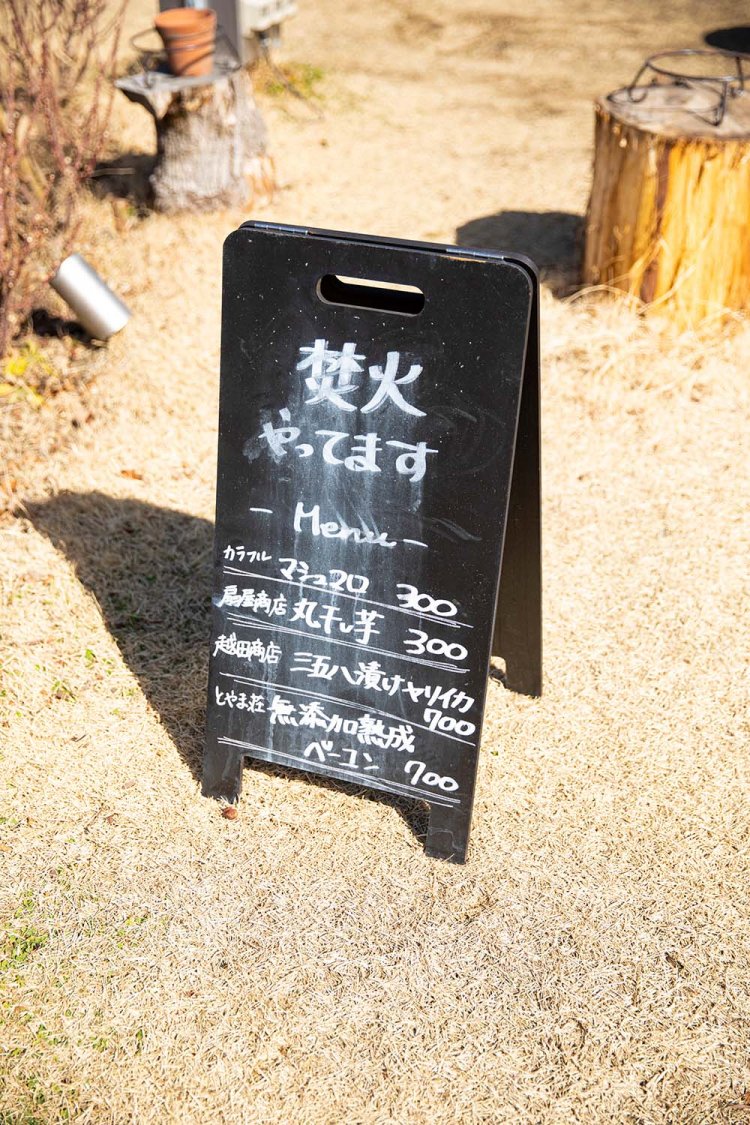 焚火
やってます
- Menu -
カラフル マシュマロ 300
扇屋商店 丸干し芋 300
越田商店 三五八漬けヤリイカ
700
とやま荘 無添加熟成
ベーコン 700